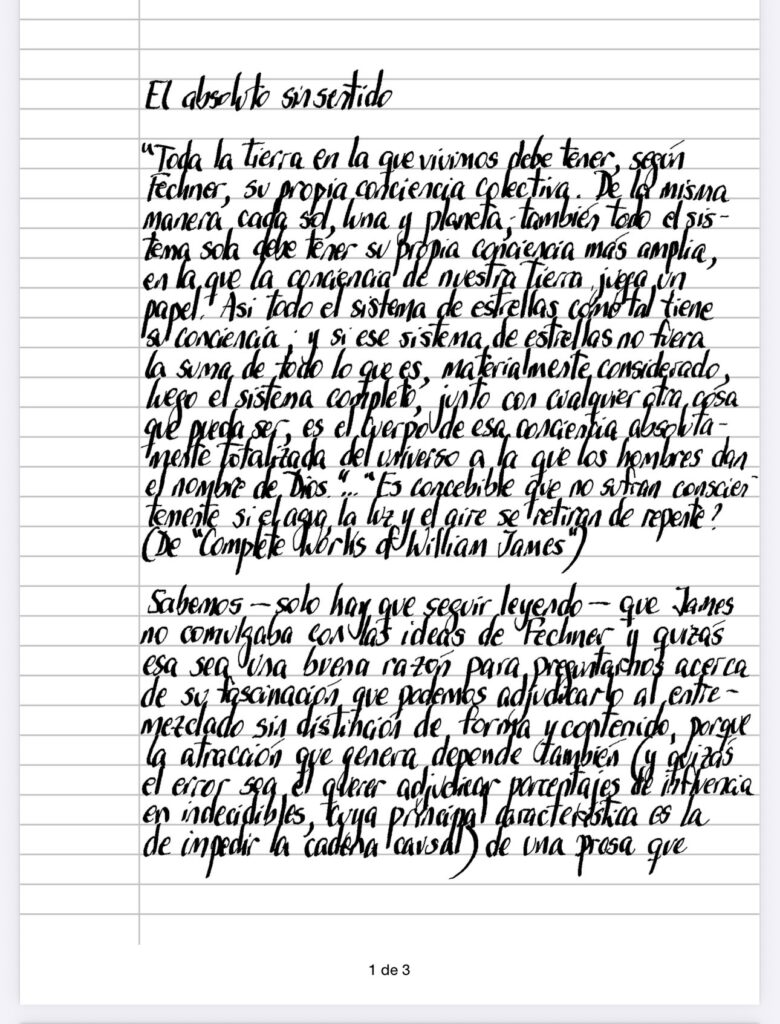 El absoluto sinsentido
"Toda la tierra en la que vivimos debe tener, según
Fechner, su propia conciencia colectiva. De la misma
manera cada sol, luna y planeta; también todo el sis-
tema sola debe tener su propia conciencia más amplia,
en la que la conciencia de nuestra tierra juega un
papel. Así todo el sistema de estrellas como tal tiene
su conciencia; y si ese sistema de estrellas no fuera
la suma de todo lo que es, materialmente considerado,
luego el sistema completo, junto con cualquier otra cosa
que pueda ser, es el cuerpo de esa conciencia absoluta-
mente totalizada del universo a la que los hombres dan
el nombre de Dios."... "Es concebible que no sufran conscien
temente si el agua, la luz y el aire se retiran de repente?
(De "Complete Works of William James")
Sabemos – solo hay que seguir leyendo – que James
no comulgaba con las ideas de Fechner y quizás
esa sea una buena razón para preguntarnos acerca
de su fascinación que podemos adjudicarlo al entre-
mezclado sin distinción de forma y contenido, porque
la atracción que genera depende también (y quizás
el error sea el querer adjudicar porcentajes de influencia
en indecidibles, cuya principal característica es la
de impedir la cadena causal) de una prosa que
1 de 3